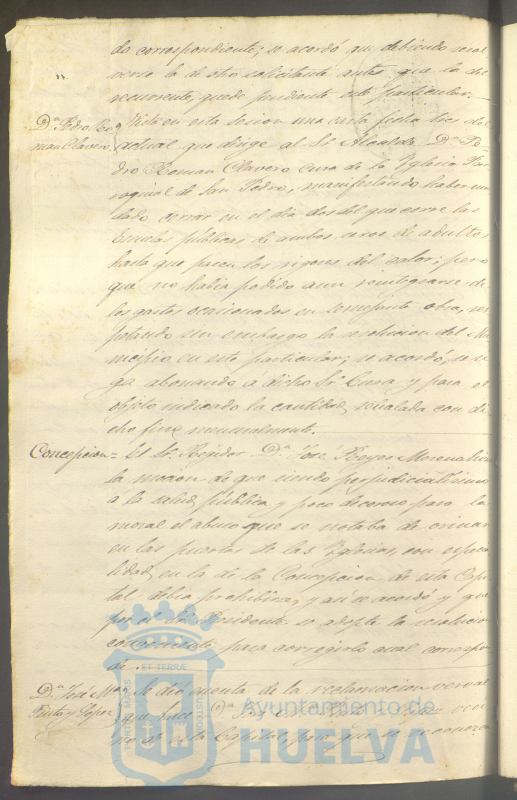 do correspondiente; se acordó que debiendo resol
verse la de otro solicitante antes que la del
recurrente, quede pendiente este particular.
Dn. Pedro Ro
man Clavero.
Vista en esta sesion una carta fecha tres del
actual que dirige al Sr. Alcalde Dn. Pe
dro Roman Clavero Cura de la Yglesia Par
roquial de San Pedro, manifestando haber man
dado cerrar en el dia dos del que corre las
Escuelas públicas de ambos sexos de adultos
hasta que pasen los rigores del calor; pero
que no habia podido aun reintegrarse de
los gastos ocasionados en semejante obra, res
petando sin embargo la resolucion del Mu
nicipio en este particular; se acordó, se si
ga abonando a dicho Sr. Cura y para el
objeto indicado la cantidad señalada con di
cho fin mensualmente.
Concepcion =
El Sr. Regidor Dn. José Reyes Morena hizo
la mocion de que siendo perjudicialisimo
a la salud pública y poco decoroso para la
moral el abuso que se notaba de orinar
en las puertas de las Yglesias, con especia
lidad en la de la Concepcion de esta Capi
tal debia prohibirse, y asi se acordó y que
por el Sr. Presidente se adopte la resolucion
conveniente para corregirlo cual correspon
de.
Dn. José Ma.
Pinto y Lopez
Se dió cuenta de la reclamacion verbal
que hace Dn. José Ma. Pinto y Lopez veci
no de esta Capital para que se
PORTUS MARIS
ET TERRÆ
CUSTODIA
Ayuntamiento de
HUELVA